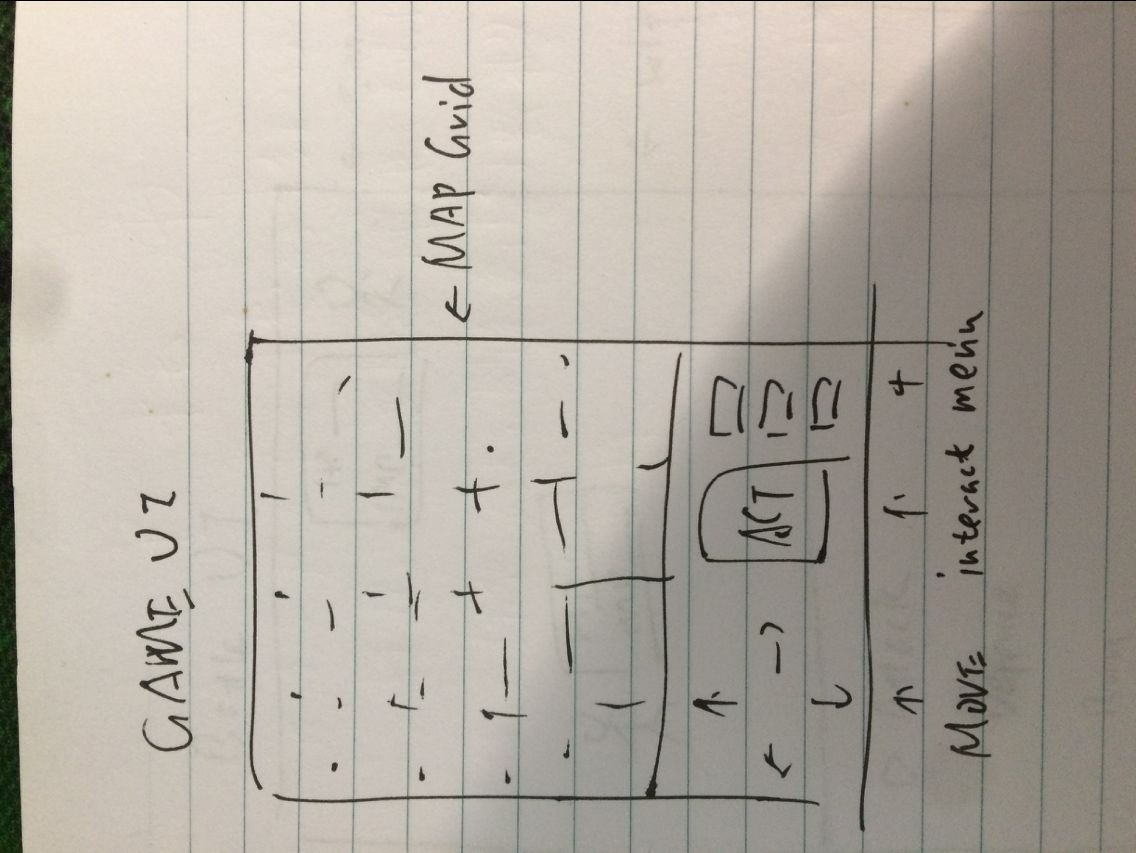 GAME UI
← MAP Grid
ACT
MOVE interact menu